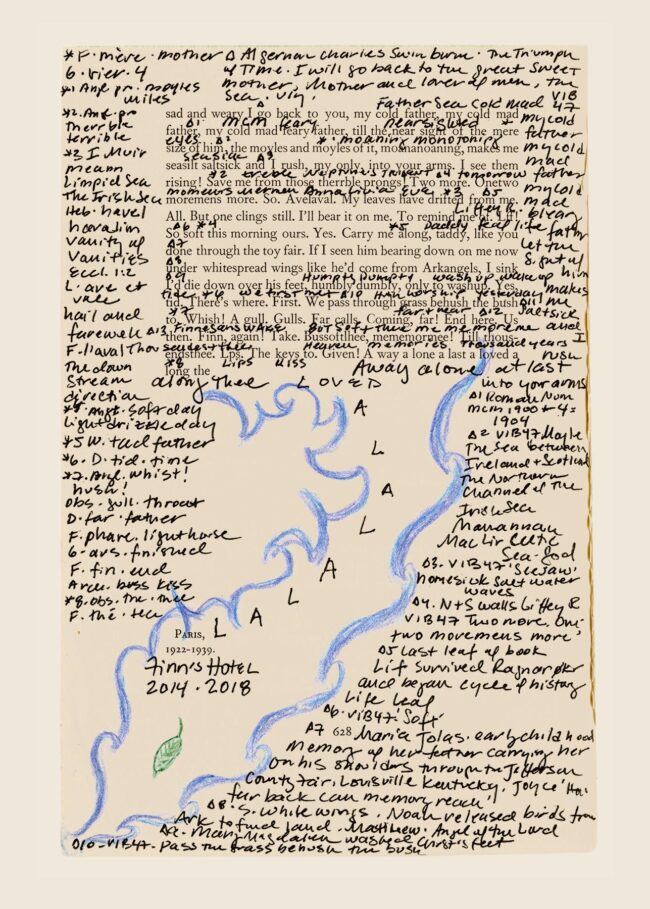 *F. mère. mother Δ Algernon Charles Swinburne. The Triumph
6. vier. 4 of Time. I will go back to the great sweet
*1 Angl pr. moyles mother, Mother and lover of men, the
miles Sea. Δ
Father Sea Cold mad VIB
47
*2. Angl. pr
therrble
terrible
*3 I. Muir
meann
Limpid Sea
The Irish Sea
Heb. havel
havalim
vanity of
vanities
Eccl. 1:2
L. ave et
vale
hail and
farewell
The down
Stream
direction
sad and weary I go back to you, my cold father, my cold mad
father, my cold mad feary father, till the near sight of the mere
size of him, the moyles and moyles of it, moananoaning, makes me
seasilt saltsick and I rush, my only, into your arms. I see them
rising! Save me from those therrble prongs! Two more. Onetwo
moremens more. So. Avelaval. My leaves have drifted from me.
All. But one clings still. I'll bear it on me. To remind me of. Lff!
So soft this morning ours. Yes. Carry me along, taddy, like you
done through the toy fair. If I seen him bearing down on me now
under whitespread wings like he'd come from Arkangels, I sink
I'd die down over his feet, humbly dumbly, only to washup. Yes,
tid. There's where. First. We pass through grass behush the bush
to. Whish! A gull. Gulls. Far calls. Coming, far! End here. Us
then. Finn, again! Take. Bussoftlhee, mememormee! Till thous-
endsthee. Lps. The keys to. Given! A way a lone a last a loved a
long the
Δ1 mcm leary nearsigwed *
eyes Δ2 *1 moaning monotoning
seasick Δ3
*2 terrible Neptunes Trident Δ4 tomorrow
Anna Livia Eve *3 Δ5
Liffey R.
Δ6 *4 *5 Daddy leaf life
Δ7
Δ8
Δ9 Humpty Dumpty wash up wake up
tide *6 we first met Δ10 worship yesterday
*7 far + near Δ12
Δ13 Finnegans WAKE But soft thee me me more me
Heaven memories. Thousand years
*8 Lips Kiss Away alone at last
along thee LOVED
my cold
father
my cold
mad
father
my cold
mad
bleary
father
Let the
Sight of
him
makes
me
Saltsick
and I
rush
into your arms
*4 Angl. soft day
light drizzle day
*5 W. tad father
*6. D. tid. time
*7. Angl. whist!
hush!
Obs. gull. throat
D. far. father
F. phare. lighthouse
F. fin. end
Arch. buss kiss
*8. obs. the. thee
F. thé. tea
A
L
A
L
A
L
A
L
Δ1 Roman Num
mcm 1900 + 4 =
1904
Δ2 VIB47 Maybe
The Sea between
Ireland + Scotland
The Northern
Channel of the
Irish Sea
Manannan
MacLir Celtic
Sea-God
Δ3. VIB47 'Seesaw'
homesick salt water
waves
Δ4. N+S walls Liffey R
VIB47 Two more. One
two movemens more'
Δ5 last leaf of book
Lif survived Ragnarokr
and began cycle of history
Life Leaf
Δ6. VIB47 'Soft'
Δ7 Maria Jolas. early childhood
628
memory of her father carrying her
on his shoulders through the Jefferson
County Fair, Louisville Kentucky. Joyce 'How
far back can memory reach'
Δ8. S. White wings. Noah released birds from
Ark to find land. Matthew. Angel of the Lord
Δ9. Mary Magdalen washed Christ's feet
Δ10. VIB47. Pass the grass behush the bush
Paris,
1922-1939.
Finn's Hotel
2014 . 2018